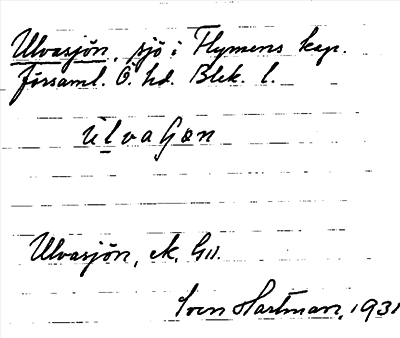 Ulvasjön, sjö i Flymens kap.
församl. Ö. hd. Blek. l.
Ulvasjön, ek. bl.
Sven Hartman, 1931